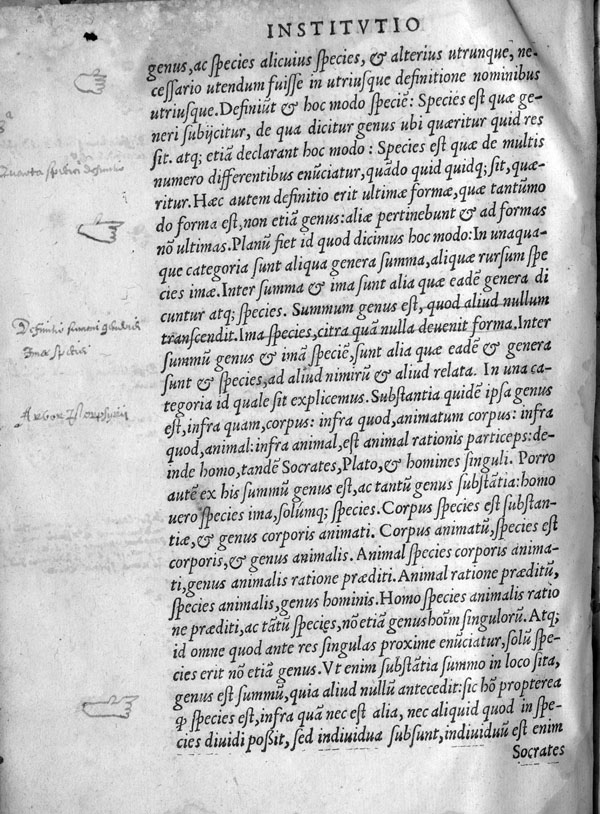 INSTITVTIO
genus, ac species alicuius speciei, & alterius utrunque, ne-
cessario utendum fuisse in utriusque definitione nominibus
utriusque. Definiũt & hoc modo speciẽ: Species est quæ ge-
neri subijcitur, de qua dicitur genus ubi quæritur quid res
sit. atq; etiã declarant hoc modo: Species est quæ de multis
numero differentibus enũciatur, quãdo quid quidq; sit, quæ-
ritur. Hæc autem definitio erit ultimæ formæ, quæ tantũmo
do forma est, non etiã genus: aliæ pertinebunt & ad formas
nõ ultimas. Planũ fiet id quod dicimus hoc modo: In unaqua-
que categoria sunt aliqua genera summa, aliquæ rursum spe
cies imæ. Inter summa & ima sunt alia quæ eadẽ genera di
cuntur atq; species. Summum genus est, quod aliud nullum
transcendit. Ima species, citra quã nulla deuenit forma. Inter
summũ genus & imã speciẽ, sunt alia quæ eadẽ & genera
sunt & species, ad aliud nimirũ & aliud relata. In una ca-
tegoria id quale sit explicemus. Substantia quidẽ ipsa genus
est, infra quam, corpus: infra quod, animatum corpus: infra
quod, animal: infra animal, est animal rationis particeps: de-
inde homo, tandẽ Socrates, Plato, & homines singuli. Porro
autẽ ex his summũ genus est, ac tantũ genus substãtia: homo
uero species ima, solumq; species. Corpus species est substan-
tiæ, & genus corporis animati. Corpus animatũ, species est
corporis, & genus animalis. Animal species corporis anima-
ti, genus animalis ratione præditi. Animal ratione præditũ,
species animalis, genus hominis. Homo species animalis ratio
ne præditi, ac tãtũ species, nõ etiã genus hoĩm singulorũ. Atq;
id omne quod ante res singulas proxime enũciatur, solũ spe-
cies erit nõ etiã genus. Vt enim substãtia summo in loco sita,
genus est summũ, quia aliud nullũ antecedit: sic hõ propterea
ꝙ species est, infra quã nec est alia, nec aliquid quod in spe-
cies diuidi possit, sed indiuidua subsunt, indiuiduũ est enim
Socrates
Quarta speciei definitio
Definitio summi generis
Imæ speciei
Arbor